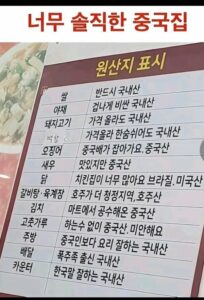 너무 솔직한 중국집
원산지 표시
쌀 반드시 국내산
야채 겁나게 비싼 국내산
돼지고기 가격 올라도 국내산
가격올라 한숨쉬어도 국내산
오징어 중국배가 잡아가요, 중국산
새우 맛있지만 중국산
닭 치킨집이 너무 많아요 브라질, 미국산
갈비탕·육계장 호주가 더 청정지역, 호주산
김치 마트에서 공수해온 중국산
고춧가루 하는수 없이 중국산, 미안해요
주방 중국인보다 요리 잘하는 국내산
배달 폭주족 출신 국내산
카운터 한국말 잘하는 국내산